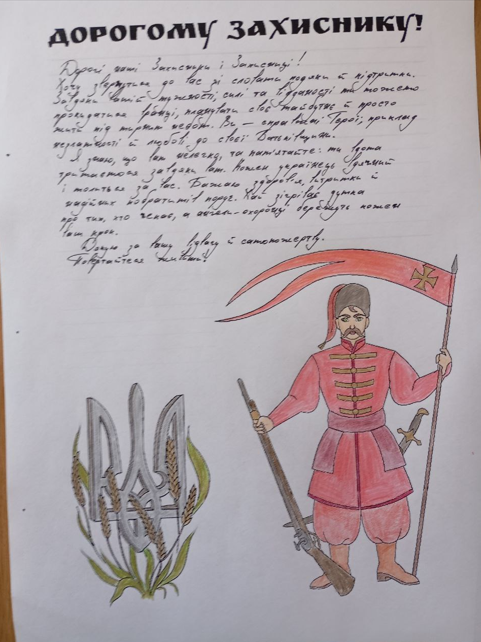 ДОРОГОМУ ЗАХИСНИКУ!
Дорогі наші Захисники і Захисниці!
Хочу звернутися до вас зі словами подяки й підтримки.
Завдяки вашій мужності, силі та відданості ми можемо
прокидатися вранці, планувати своє майбутнє й просто
жити під мирним небом. Ви – справжні Герої, приклад
незламності й любові до своєї Батьківщини.
Я знаю, що вам нелегко, та пам'ятайте: ми
тримаємося завдяки вам. Кожен українець вдячний
і молиться за вас. Бажаю здоров'я, витримки й
надійних побратимів поруч. Хай зігріває думка
про тих, хто чекає, а янголи-охоронці бережуть кожен
ваш крок.
Дякую за вашу відвагу й самопожертву.
Повертайтеся живими!